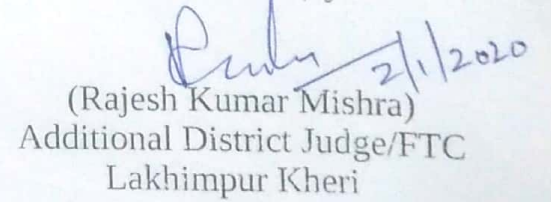 2/1/2020
(Rajesh Kumar Mishra)
Additional District Judge/FTC
Lakhimpur Kheri